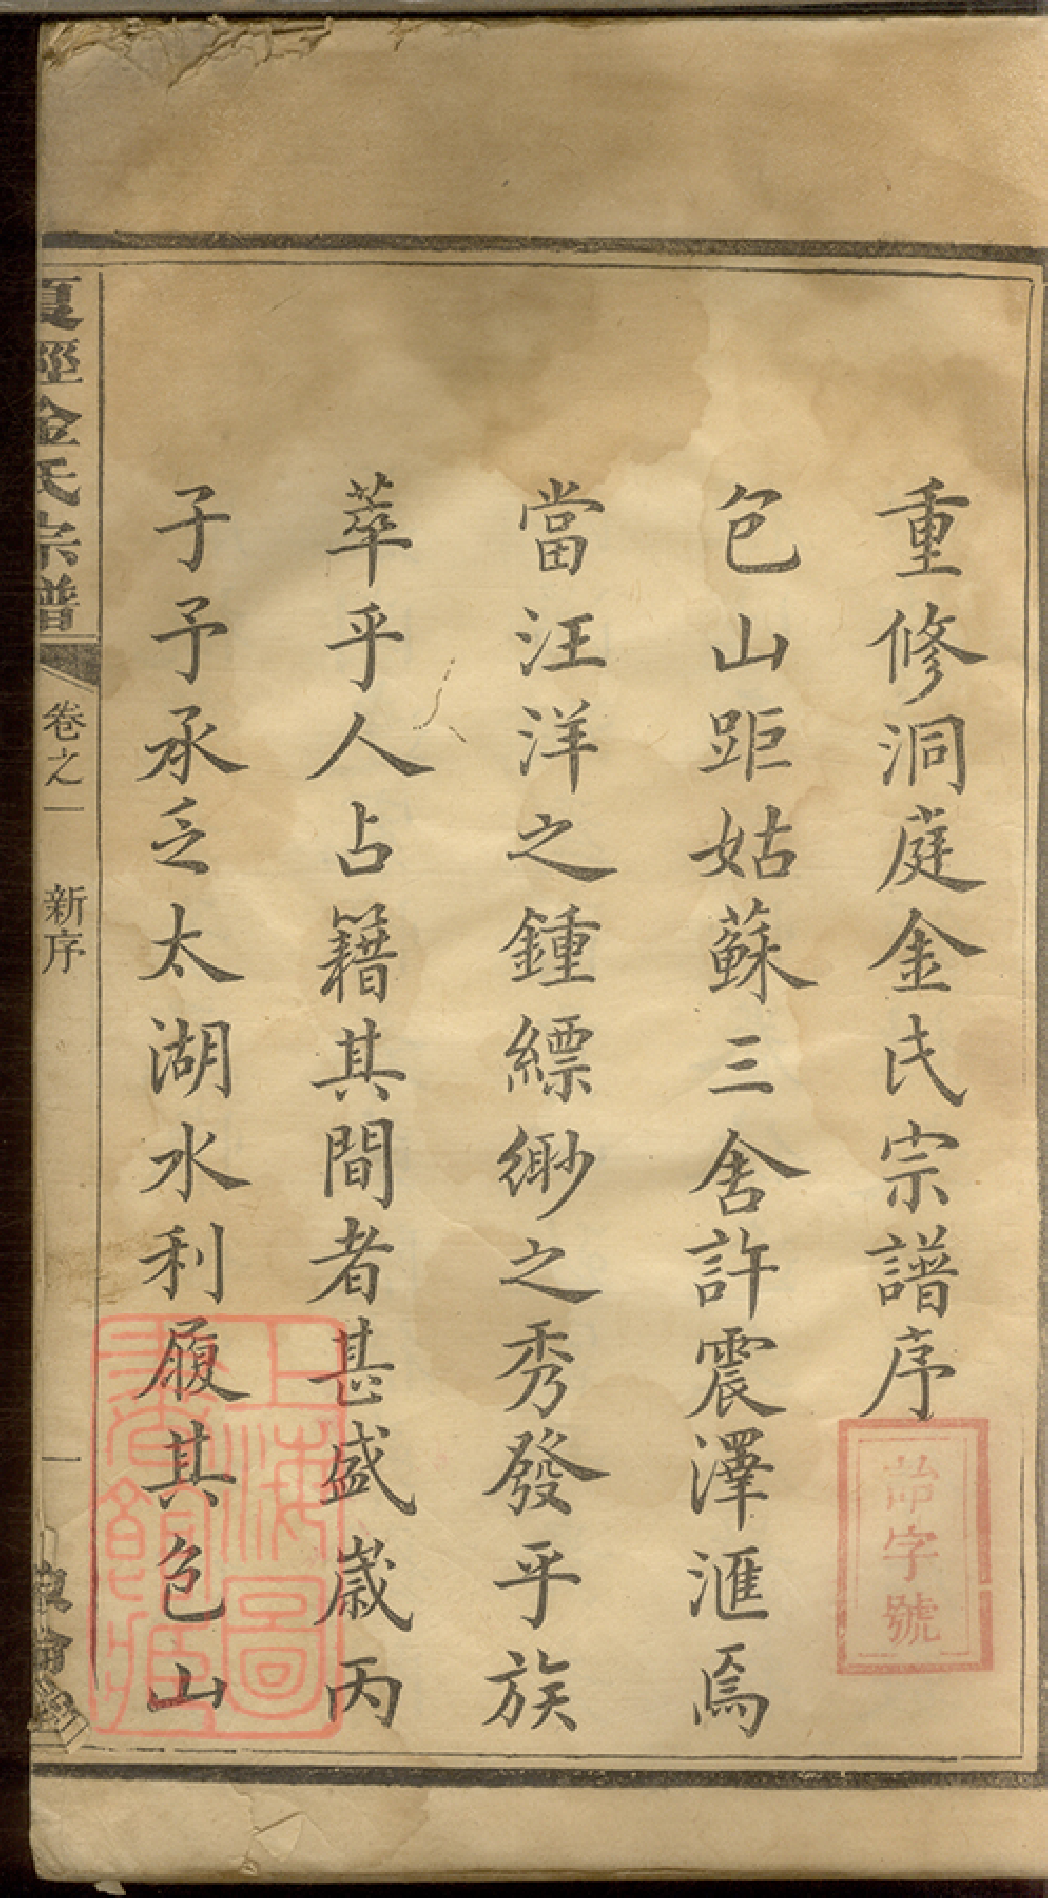 重修洞庭金氏宗譜序
包山距姑蘇三舍許震澤滙焉
當汪洋之鍾縹緲之秀發乎族
萃乎人占籍其間者甚盛歳丙
子予承乏太湖水利履其包山
夏逕金氏宗譜
卷之一
新序
一
字號
上海圖書館藏